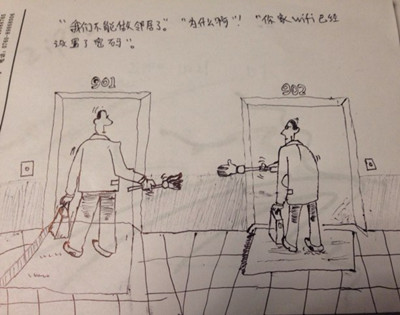 “我们不能做邻居了。”“为什么啊”！“你家Wifi已经
设置了密码”
901
902